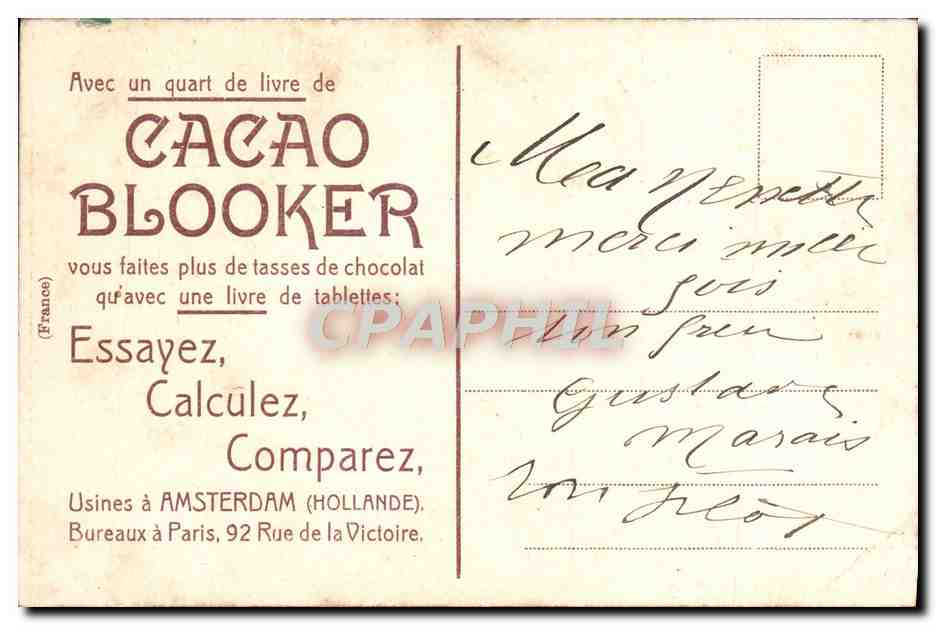 Avec un quart de livre de
CACAO
BLOOKER
vous faites plus de tasses de chocolat
qu'avec une livre de tablettes:
Essayez,
Calculez,
Comparez,
Usines à AMSTERDAM (HOLLANDE).
Bureaux à Paris, 92 Rue de la Victoire.
(France)
CPAPHIL
merci mille
fois
Gustave
Marais